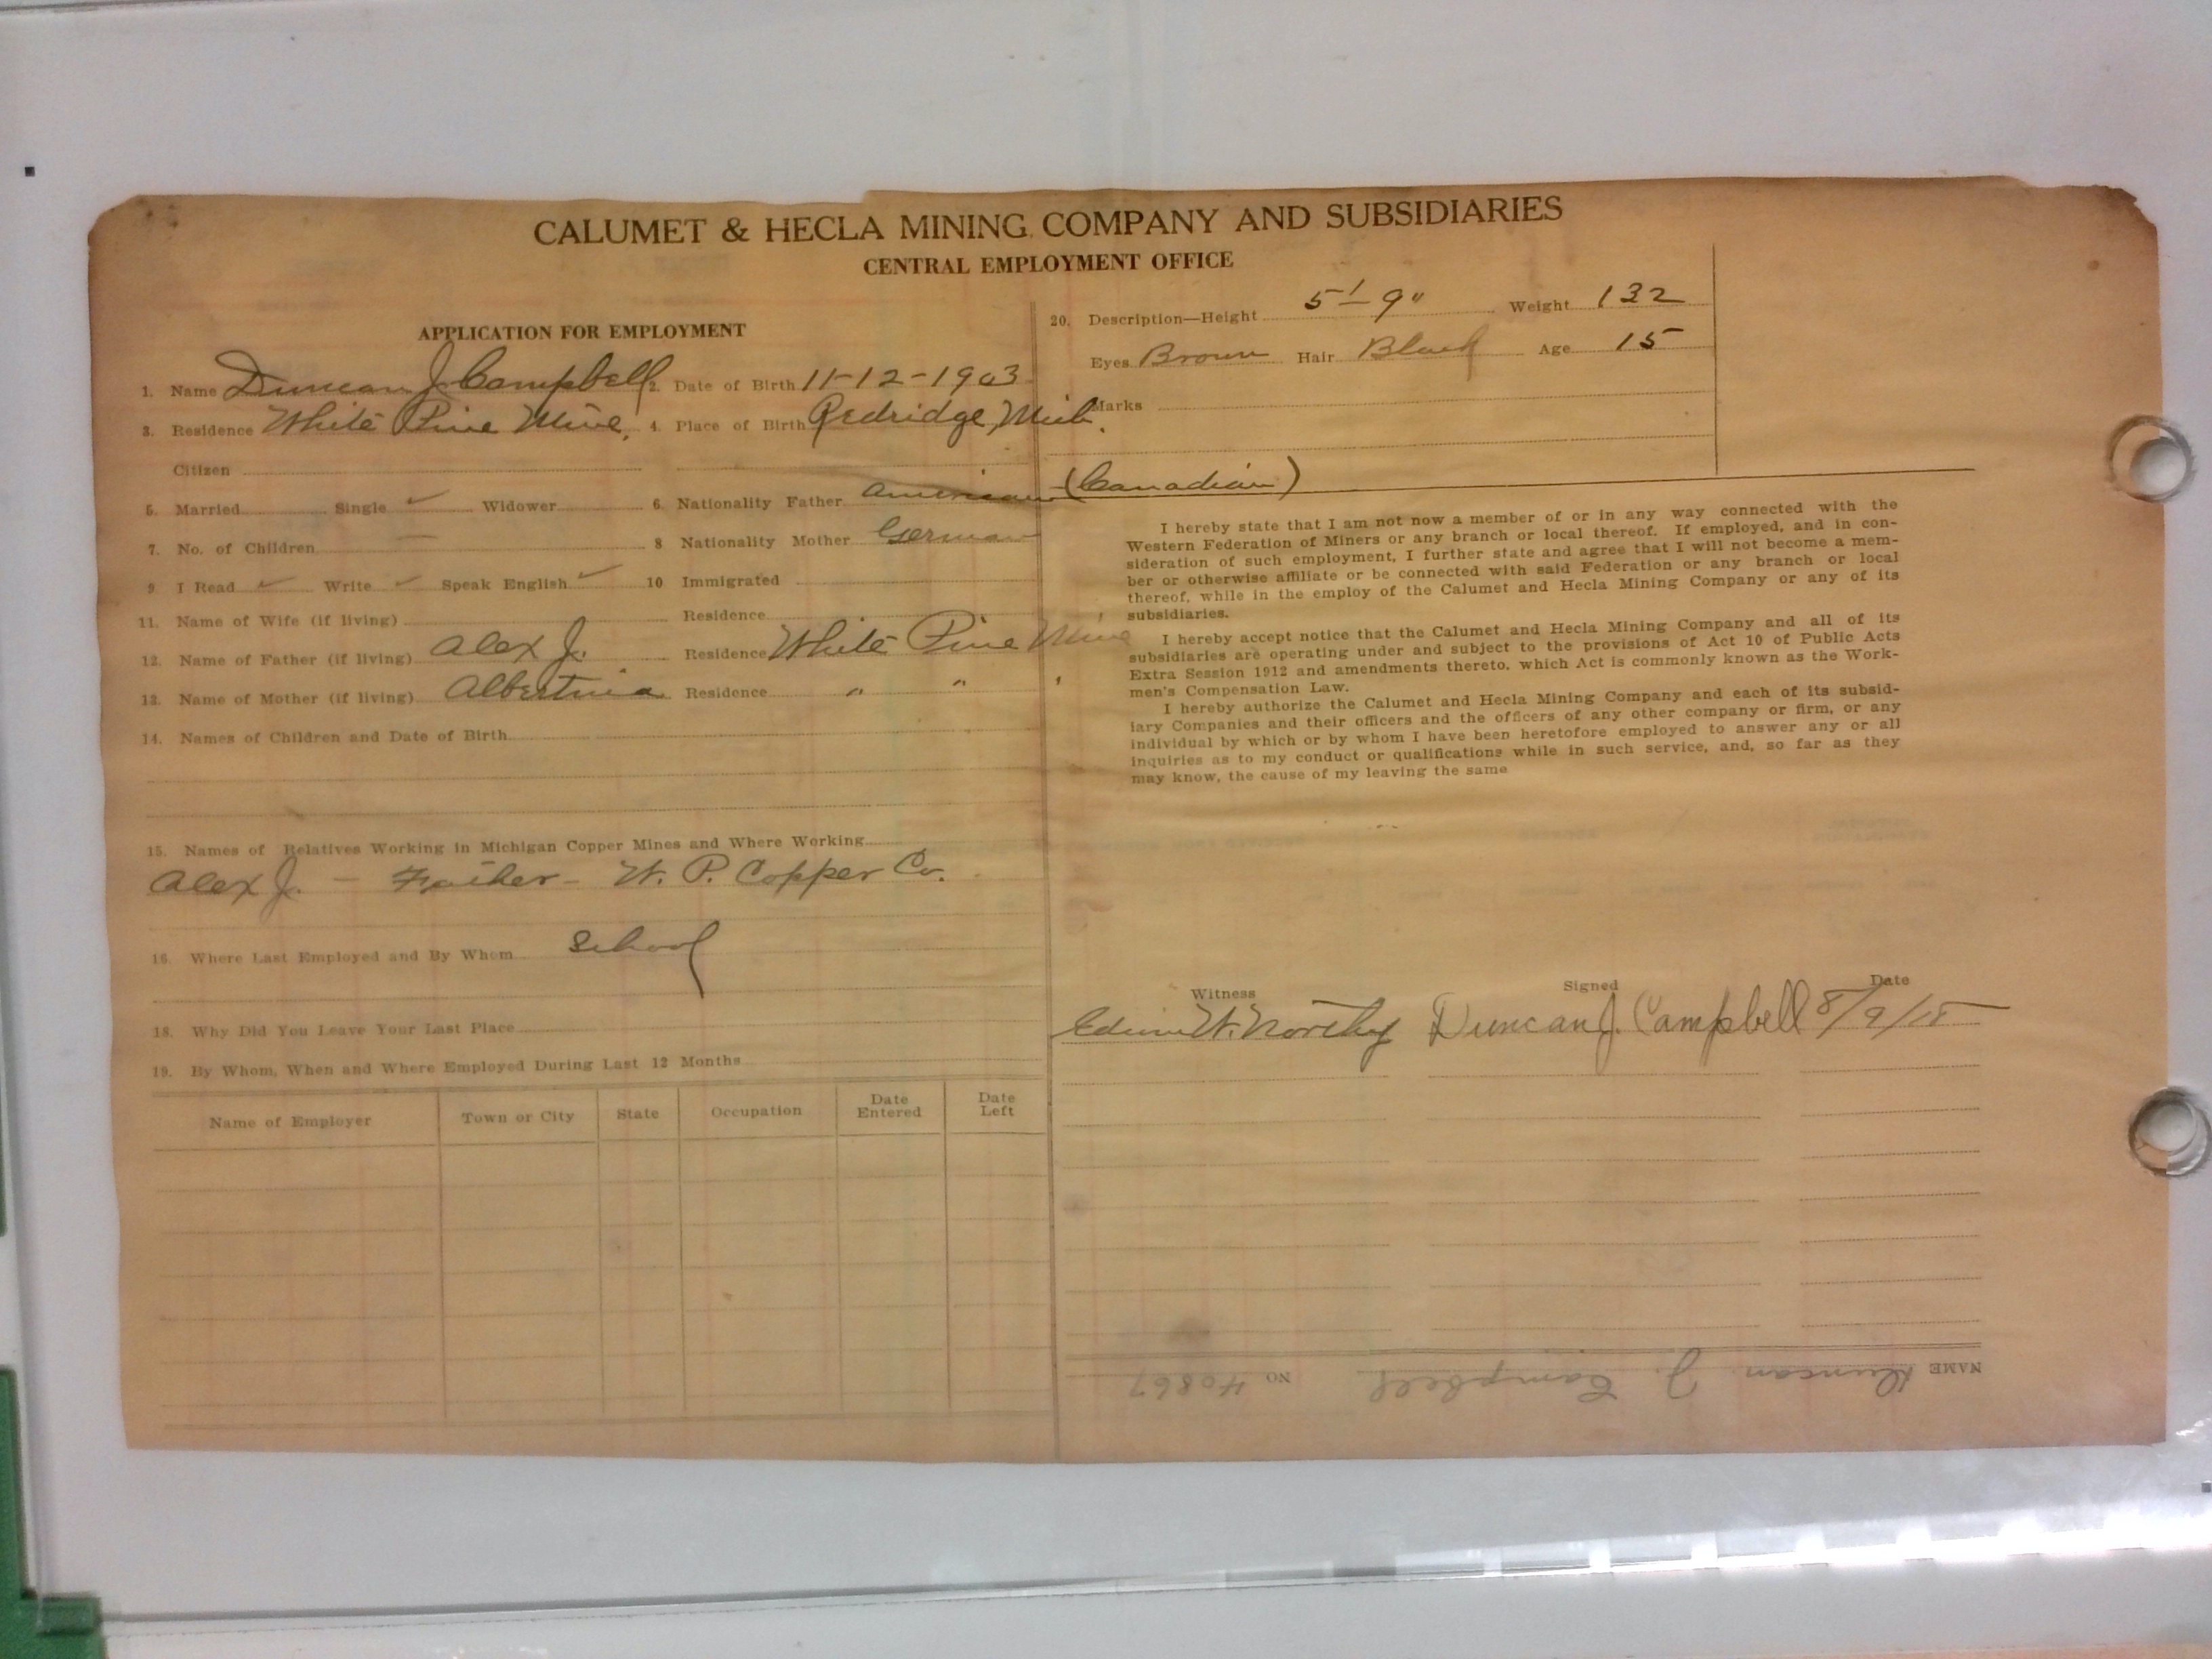 CALUMET & HECLA MINING COMPANY AND SUBSIDIARIES
CENTRAL EMPLOYMENT OFFICE
APPLICATION FOR EMPLOYMENT
1. Name Duncan J. Campbell 2. Date of Birth 11-12-1903
3. Residence White Pine Mine, 4. Place of Birth Redridge, Mich.
Citizen
5. Married Single ✓ Widower 6. Nationality Father American (Canadian)
7. No. of Children — 8 Nationality Mother German
9 I Read ✓ Write ✓ Speak English ✓ 10 Immigrated
11. Name of Wife (if living) Residence
12. Name of Father (if living) Alex J. Residence White Pine Mine
13. Name of Mother (if living) Albertina Residence " " '
14. Names of Children and Date of Birth
15. Names of Relatives Working in Michigan Copper Mines and Where Working
Alex J. — Father — W. P. Copper Co.
16. Where Last Employed and By Whom School
18. Why Did You Leave Your Last Place
19. By Whom, When and Where Employed During Last 12 Months
Name of Employer Town or City State Occupation Date Entered Date Left
20. Description—Height 5'-9" Weight 132
Eyes Brown Hair Black Age 15
Marks
I hereby state that I am not now a member of or in any way connected with the
Western Federation of Miners or any branch or local thereof. If employed, and in con-
sideration of such employment, I further state and agree that I will not become a mem-
ber or otherwise affiliate or be connected with said Federation or any branch or local
thereof, while in the employ of the Calumet and Hecla Mining Company or any of its
subsidiaries.
I hereby accept notice that the Calumet and Hecla Mining Company and all of its
subsidiaries are operating under and subject to the provisions of Act 10 of Public Acts
Extra Session 1912 and amendments thereto, which Act is commonly known as the Work-
men's Compensation Law.
I hereby authorize the Calumet and Hecla Mining Company and each of its subsid-
iary Companies and their officers and the officers of any other company or firm, or any
individual by which or by whom I have been heretofore employed to answer any or all
inquiries as to my conduct or qualifications while in such service, and, so far as they
may know, the cause of my leaving the same
Witness Signed Date
Edwin W. Northey Duncan J. Campbell 8/9/18
NAME Duncan J. Campbell NO 40867